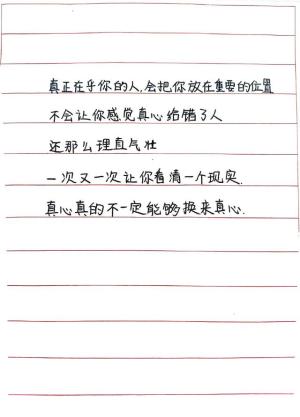 真正在乎你的人,会把你放在重要的位置
不会让你感觉真心给错了人
还那么理直气壮
一次又一次让你看清一个现实.
真心真的不一定能够换来真心.